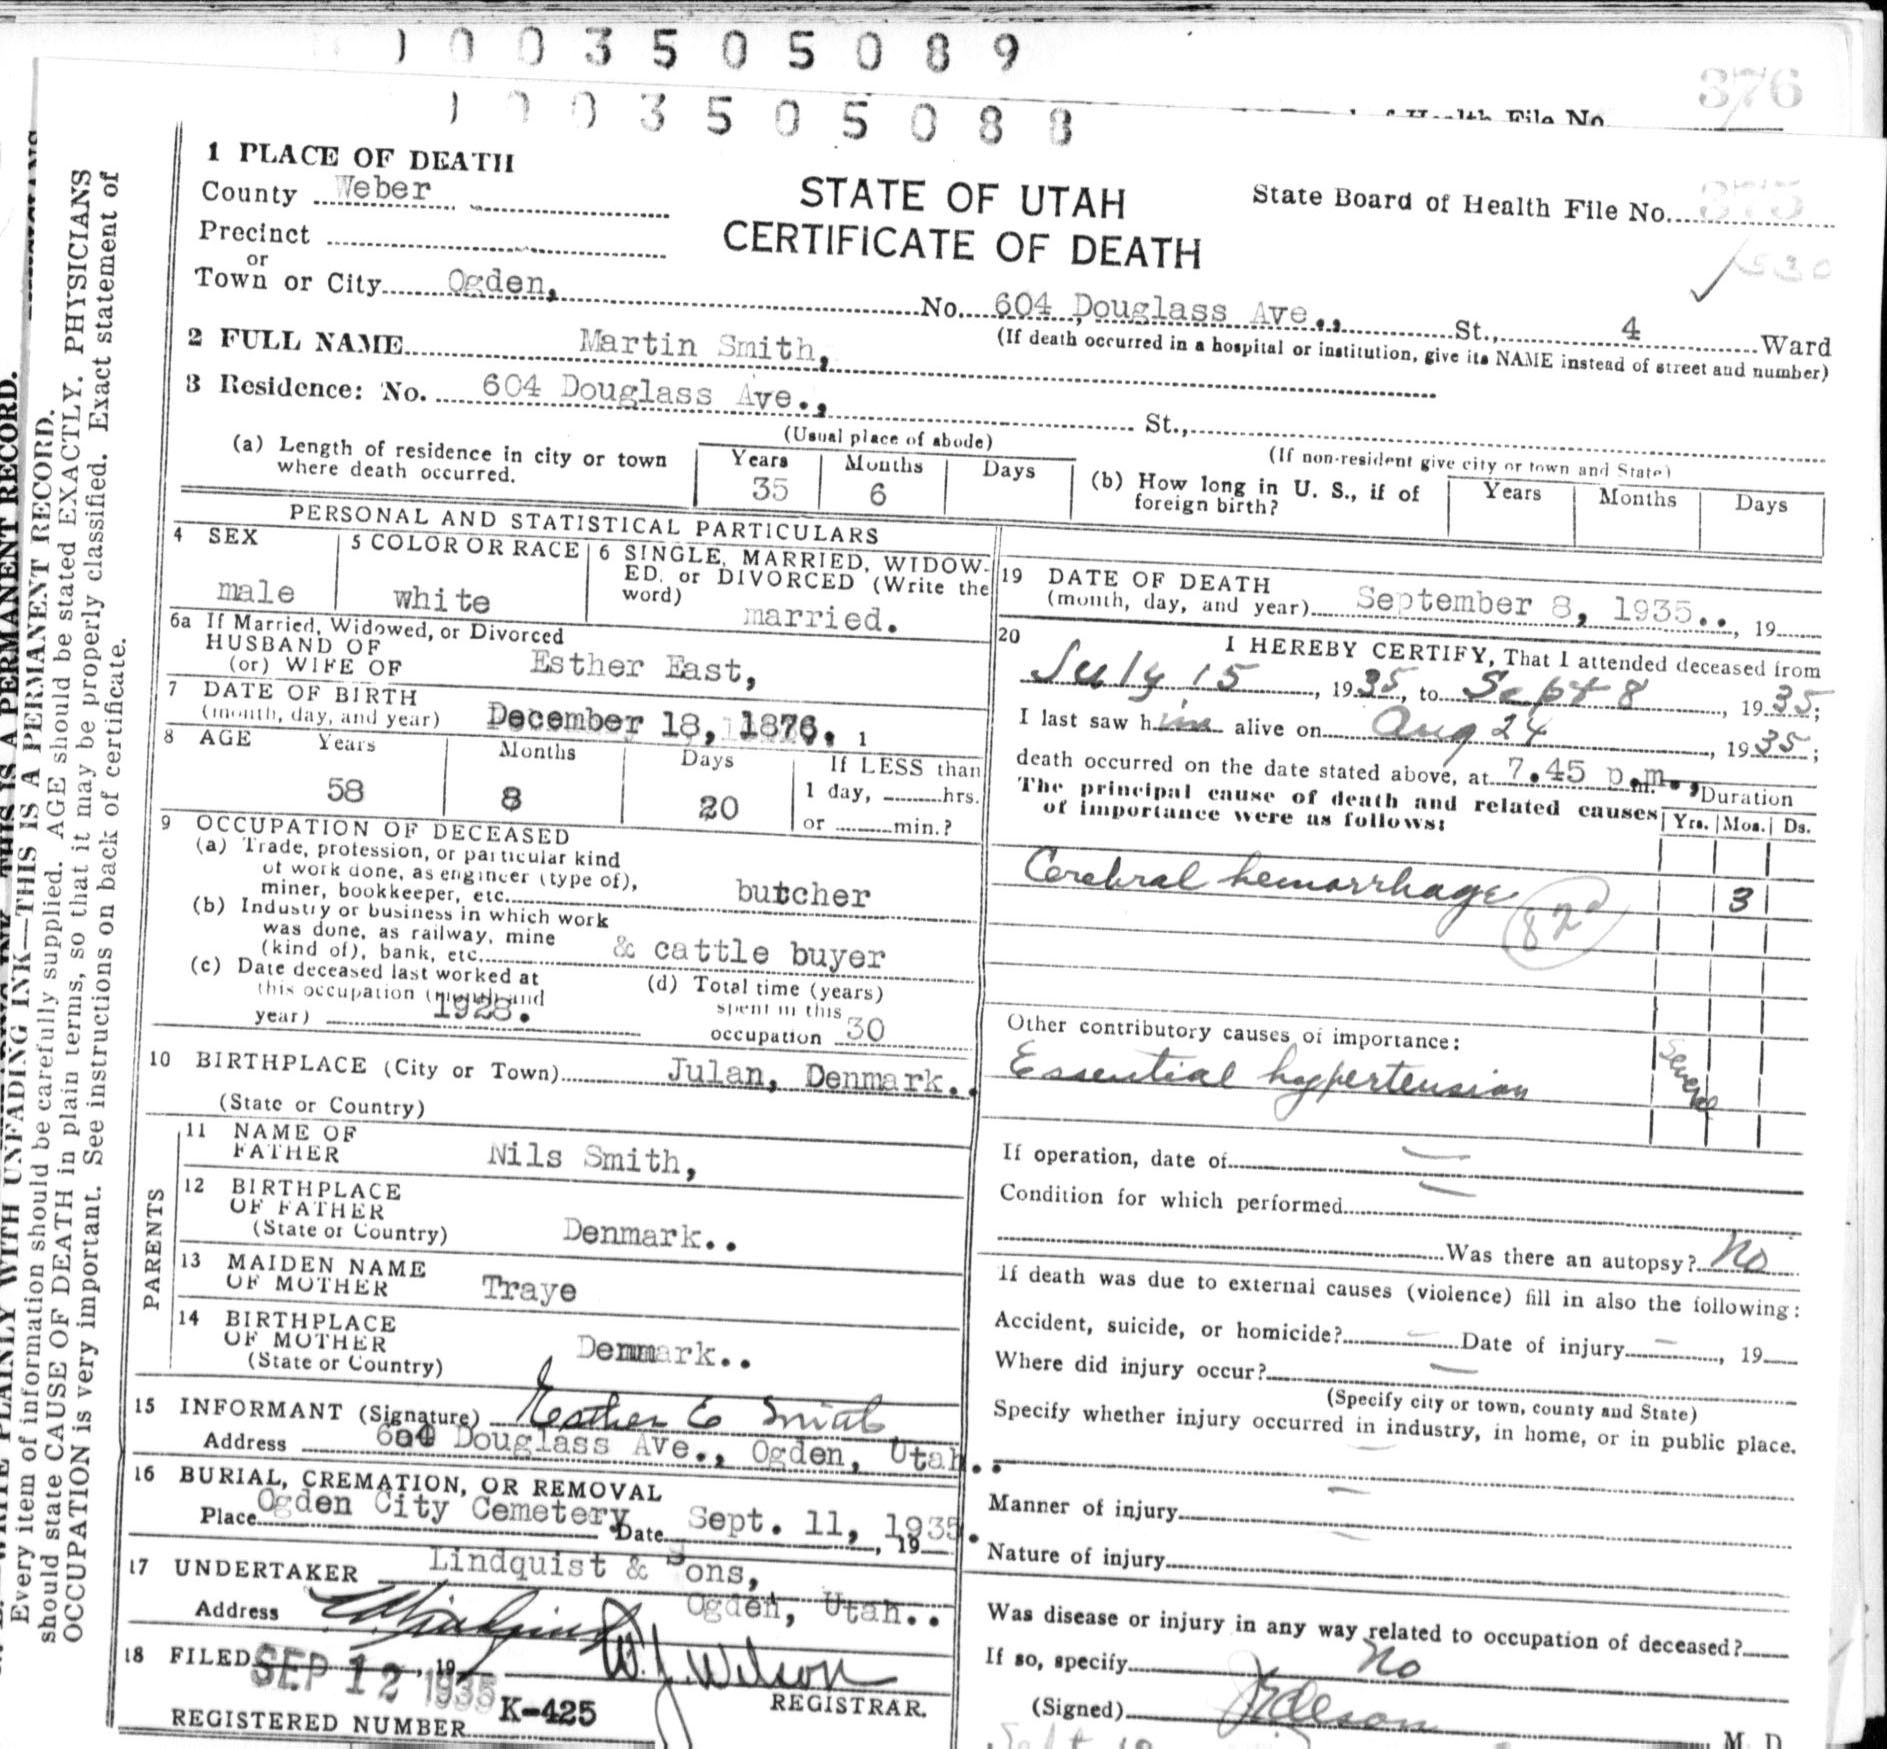 1003505089
376
of Health File No.
1003505088
1 PLACE OF DEATH
County Weber
STATE OF UTAH
CERTIFICATE OF DEATH
State Board of Health File No. 375
Precinct
or
Town or City Ogden, No. 604 Douglass Ave., St., 4 Ward
(If death occurred in a hospital or institution, give its NAME instead of street and number)
2 FULL NAME Martin Smith,
3 Residence: No. 604 Douglass Ave., St.,
(Usual place of abode)
(If non-resident give city or town and State)
(a) Length of residence in city or town
where death occurred.
Years Months Days
35 6
(b) How long in U. S., if of
foreign birth?
Years Months Days
PERSONAL AND STATISTICAL PARTICULARS
4 SEX
male
5 COLOR OR RACE
white
6 SINGLE, MARRIED, WIDOW-
ED, or DIVORCED (Write the
word)
married.
6a If Married, Widowed, or Divorced
HUSBAND OF
(or) WIFE OF Esther East,
7 DATE OF BIRTH
(month, day, and year) December 18, 1876. 1
8 AGE Years Months Days
58 8 20
If LESS than
1 day, hrs.
or min.?
9 OCCUPATION OF DECEASED
(a) Trade, profession, or particular kind
of work done, as engineer (type of),
miner, bookkeeper, etc. butcher
(b) Industry or business in which work
was done, as railway, mine
(kind of), bank, etc. & cattle buyer
(c) Date deceased last worked at
this occupation (month and
year) 1928.
(d) Total time (years)
spent in this
occupation 30
10 BIRTHPLACE (City or Town) Julan, Denmark..
(State or Country)
PARENTS
11 NAME OF
FATHER Nils Smith,
12 BIRTHPLACE
OF FATHER
(State or Country) Denmark..
13 MAIDEN NAME
OF MOTHER Traye
14 BIRTHPLACE
OF MOTHER
(State or Country) Denmark..
15 INFORMANT (Signature) Esther E Smith
Address 604 Douglass Ave., Ogden, Utah..
16 BURIAL, CREMATION, OR REMOVAL
Place Ogden City Cemetery Date Sept. 11, 1935. , 19
17 UNDERTAKER Lindquist & Sons,
Address Ogden, Utah..
18 FILED SEP 12 1935 , 19
W. J. Wilson
REGISTRAR.
REGISTERED NUMBER K-425
19 DATE OF DEATH
(month, day, and year) September 8, 1935.., 19
20 I HEREBY CERTIFY, That I attended deceased from
July 15, 1935, to Sept 8, 1935;
I last saw him alive on Aug 24, 1935;
death occurred on the date stated above, at 7.45 p.m.,
The principal cause of death and related causes
of importance were as follows:
Duration
Yrs. Mos. Ds.
Cerebral hemorrhage 3
82a
Other contributory causes of importance:
Essential hypertension Several
If operation, date of —
Condition for which performed —
Was there an autopsy? No
If death was due to external causes (violence) fill in also the following:
Accident, suicide, or homicide? — Date of injury —, 19
Where did injury occur? —
(Specify city or town, county and State)
Specify whether injury occurred in industry, in home, or in public place.
—
Manner of injury —
Nature of injury —
Was disease or injury in any way related to occupation of deceased?
No
If so, specify
(Signed)
M. D.
THIS IS A PERMANENT RECORD.
WRITE PLAINLY WITH UNFADING INK—THIS IS A PERMANENT RECORD.
Every item of information should be carefully supplied. AGE should be stated EXACTLY. PHYSICIANS
should state CAUSE OF DEATH in plain terms, so that it may be properly classified. Exact statement of
OCCUPATION is very important. See instructions on back of certificate.